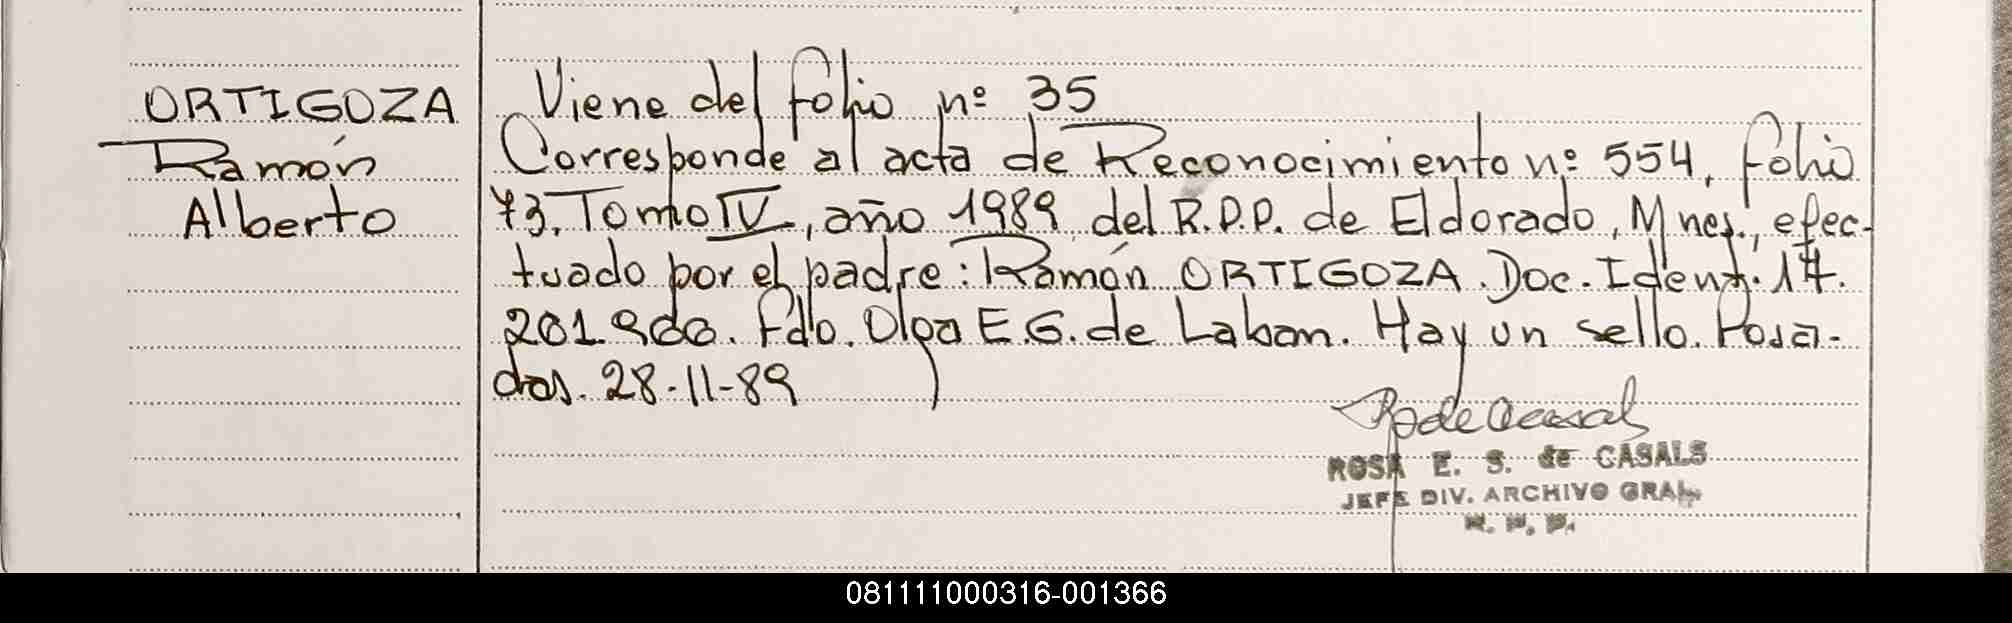 ORTIGOZA
Ramón
Alberto
Viene del folio nº 35
Corresponde al acta de Reconocimiento nº 554, folio
73, Tomo IV, año 1989 del R.P.P. de Eldorado, Mnes., efec-
tuado por el padre: Ramón ORTIGOZA. Doc. Ident. 17.
201.980. Fdo. Olga E.G. de Laban. Hay un sello. Posa-
das. 28-11-89
ROSA E. S. de CASALS
JEFE DIV. ARCHIVO GRAL.
081111000316-001366